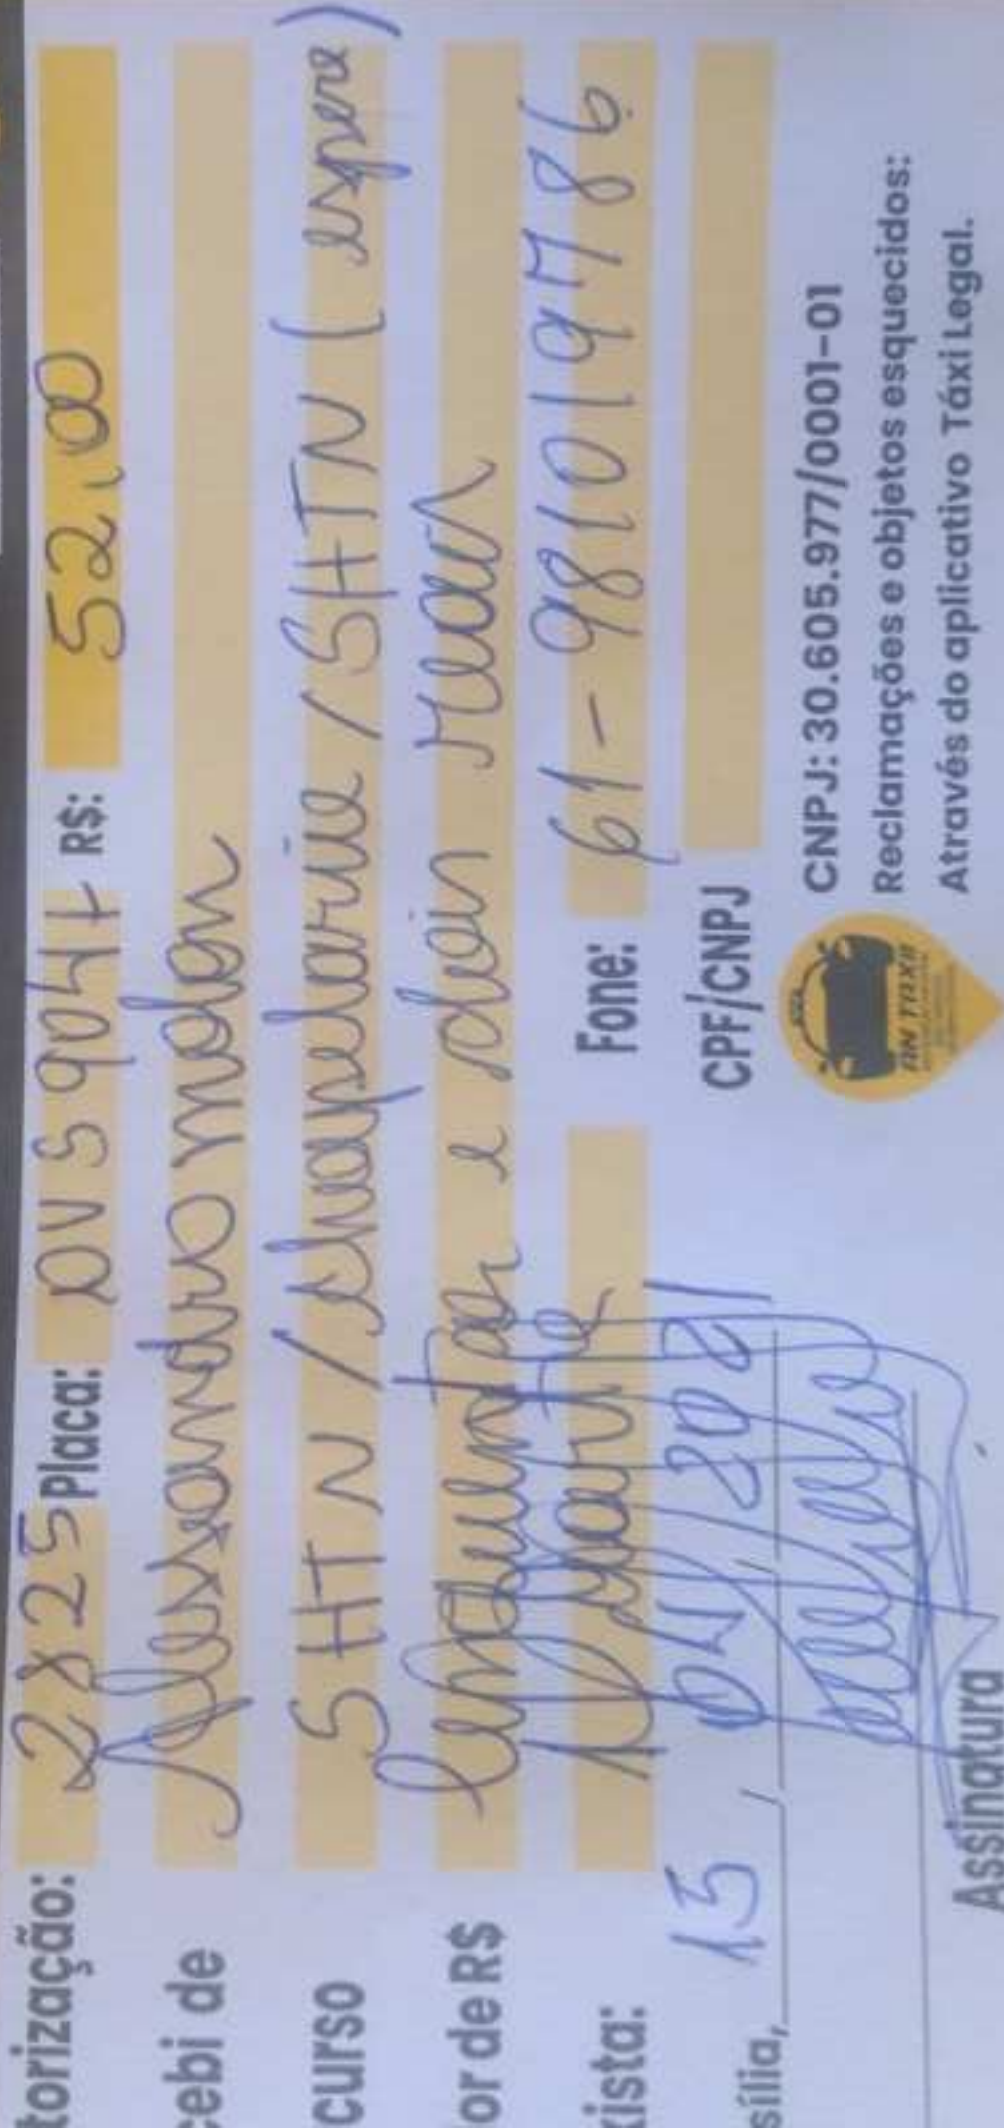 torização: 2825 Placa: OVS 9047 R$: 52,00
cebi de Alessandro molon
curso SHTN / chapelarie / SHTN ( espera )
lor de R$ Cinquenta e dois reais
xista: Duarte Fone: 61 - 981019786
sília, 15 / 04 / 2021 CPF/CNPJ
Assinatura
CNPJ: 30.605.977/0001-01
Reclamações e objetos esquecidos:
Através do aplicativo Táxi Legal.